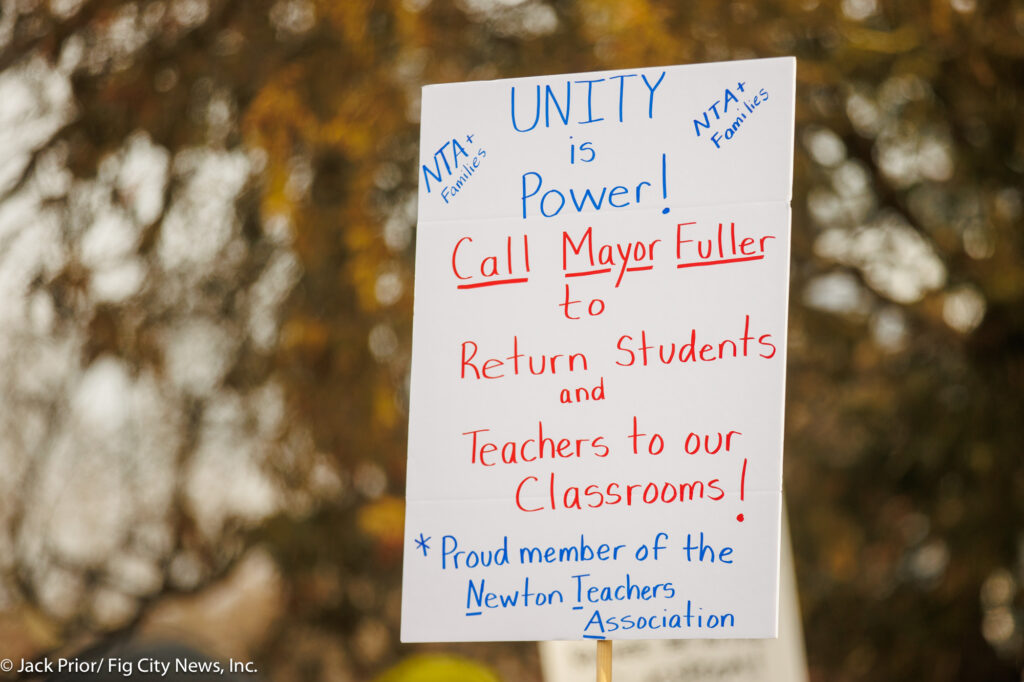 UNITY
is
Power!
NTA+
Families
NTA+
Families
Call Mayor Fuller
to
Return Students
and
Teachers to our
Classrooms!
* Proud member of the
Newton Teachers
Association
© Jack Prior/ Fig City News, Inc.